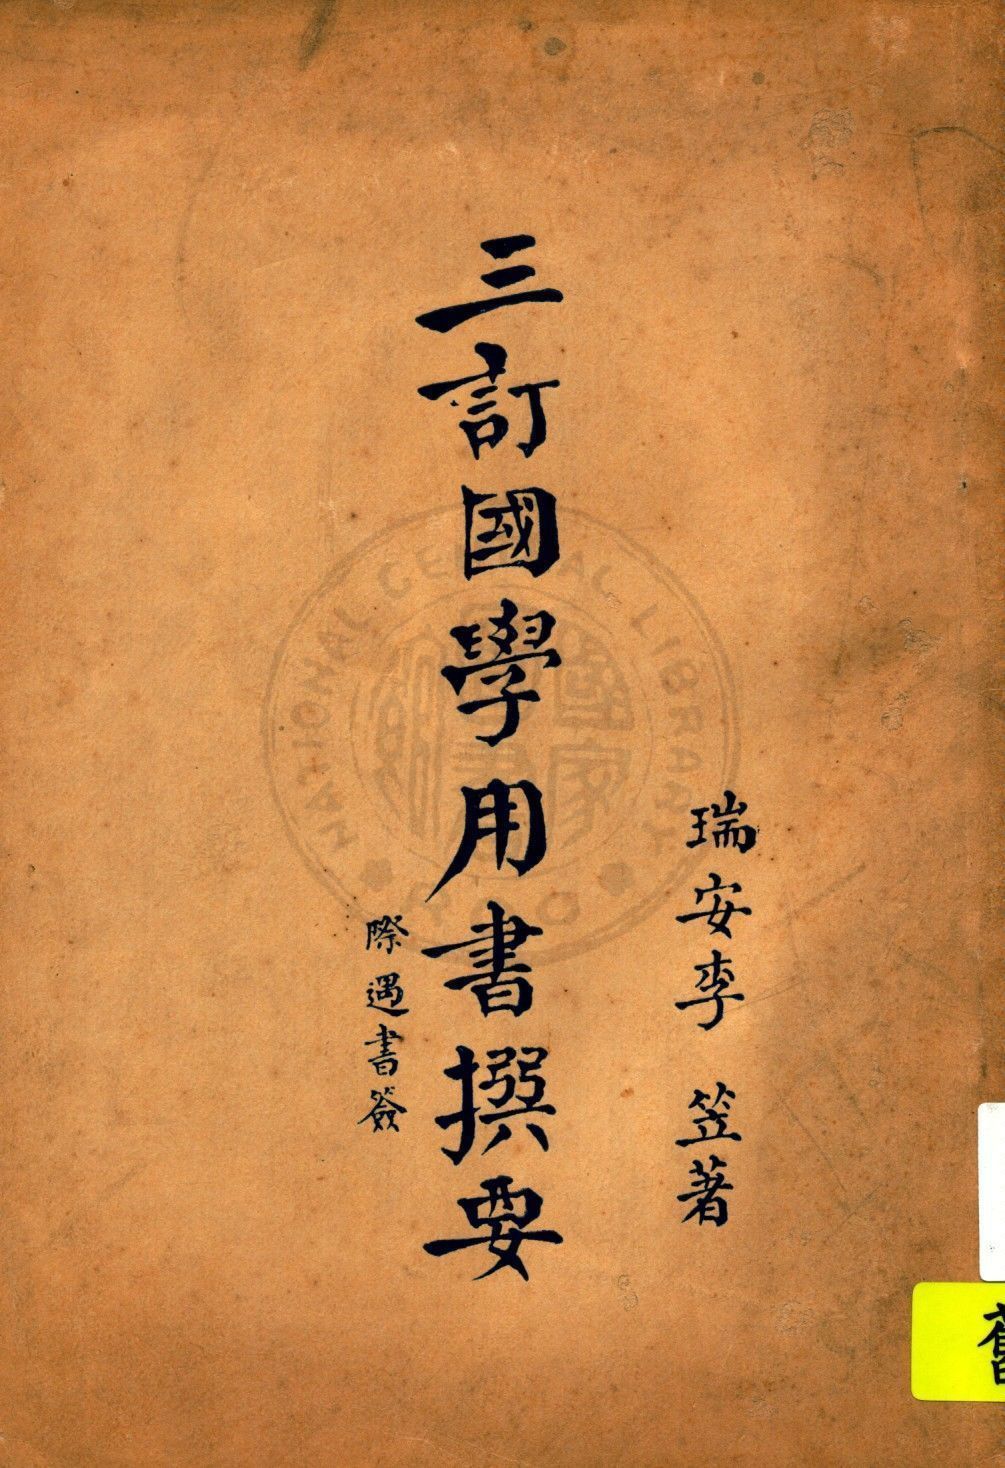 瑞安李笠著
三訂國學用書撰要
際遇書簽
NATIONAL CENTRAL LIBRARY
舊